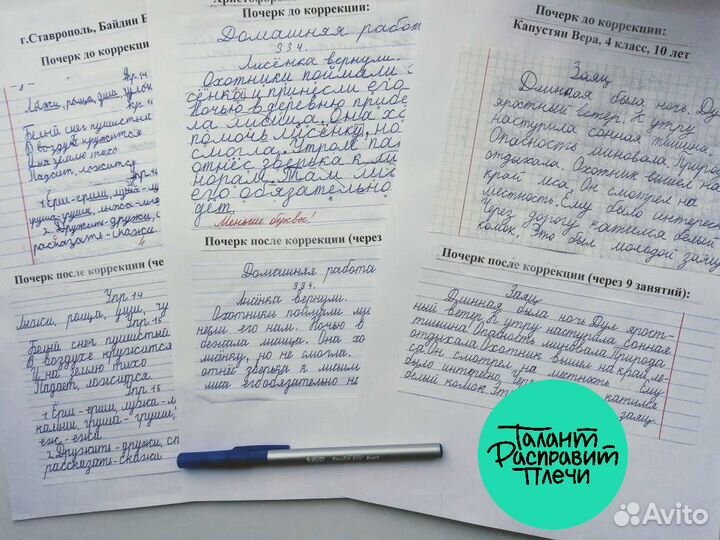 г.Ставрополь, Байдин
Почерк до коррекции
Упр. 14
Лыжи, роща, щуп,
Упр. 15
Белый снег пушистый
В воздухе кружится
И на землю тихо
Падает, ложится
Упр. 16
1. Ёрш - ерши,
груша - груши,
2. Дружить - дружи,
рассказать - скажи.
4
Почерк после коррекции (че
Упр. 14
Лыжи, роща, щуп, чу
Упр. 15
Белый снег пушистый
В воздухе кружится
И на землю тихо
Падает, ложится.
Упр. 16
1. Ёрш - ерши,
груша - груши,
2. Дружить - дружи, сп
рассказать - скажи.
Почерк до коррекции:
Домашняя работ
334.
Лисёнка вернули.
Охотники поймали
сёнка и принесли его
Ночью в деревню прибе
ла лисица. Она хо
помочь лисёнку, но
смогла. Утром
отнёс зверька к ли
норам. Там ли
его обязательно
дёт.
Меньше буквы!
Почерк после коррекции (через
Домашняя работа
334.
Лисёнка вернули.
Охотники поймали ли
несли его нам. Ночью в
бежала лисица. Она хо
лисёнку, но не смогла.
отнёс зверька к лисьим
лиса его обязательно не
Почерк до коррекции:
Капустян Вера, 4 класс, 10 лет
Заяц
Длинная была ночь. Дул
яростный ветер. К утру
наступила сонная тишина.
Опасность миновала. Природа
отдыхала. Охотник вышел на
край леса. Он смотрел на
местность. Ему было интересно
Через дорогу катился белый
комок. Это был молодой заяц
Почерк после коррекции (через 9 занятий):
Заяц
Длинная была ночь. Дул ярост-
ный ветер. К утру наступила сонная
тишина. Опасность миновала. Природа
отдыхала. Охотник вышел на край ле-
са. Он смотрел на местность. Ему
было интересно. катился
белый комок. Эт заяц.
Талант
Расправит
Плечи
Avito